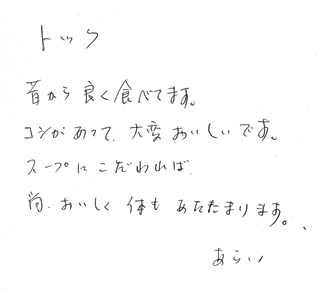 トック
昔から良く食べてます。
コシがあって、大変おいしいです。
スープにこだわれば
尚、おいしく体もあたたまります。
あらい